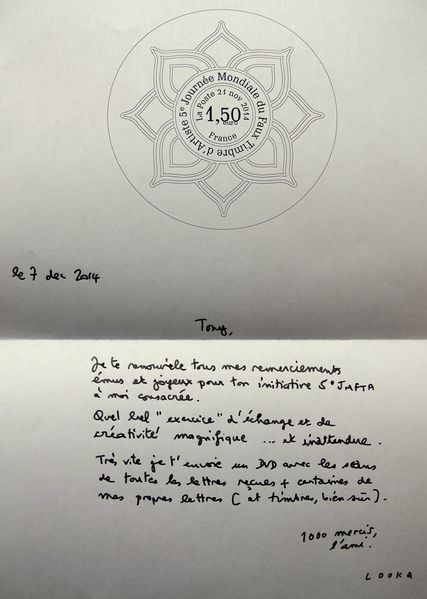 5e Journée Mondiale du Faux Timbre d'Artiste
La Poste 21 nov 2014
1,50
euro
France
le 7 dec 2014
Tony,
Je te renouvèle tous mes remerciements
émus et joyeux pour ton initiative 5° JMFTA
à moi consacrée.
Quel bel "exercice" d'échange et de
créativité magnifique ... et inattendue.
Très vite je t'envoie un DVD avec les scans
de toutes les lettres reçues + certaines de
mes propres lettres (et timbres, bien sûr).
1000 mercis,
l'ami.
LOOKA